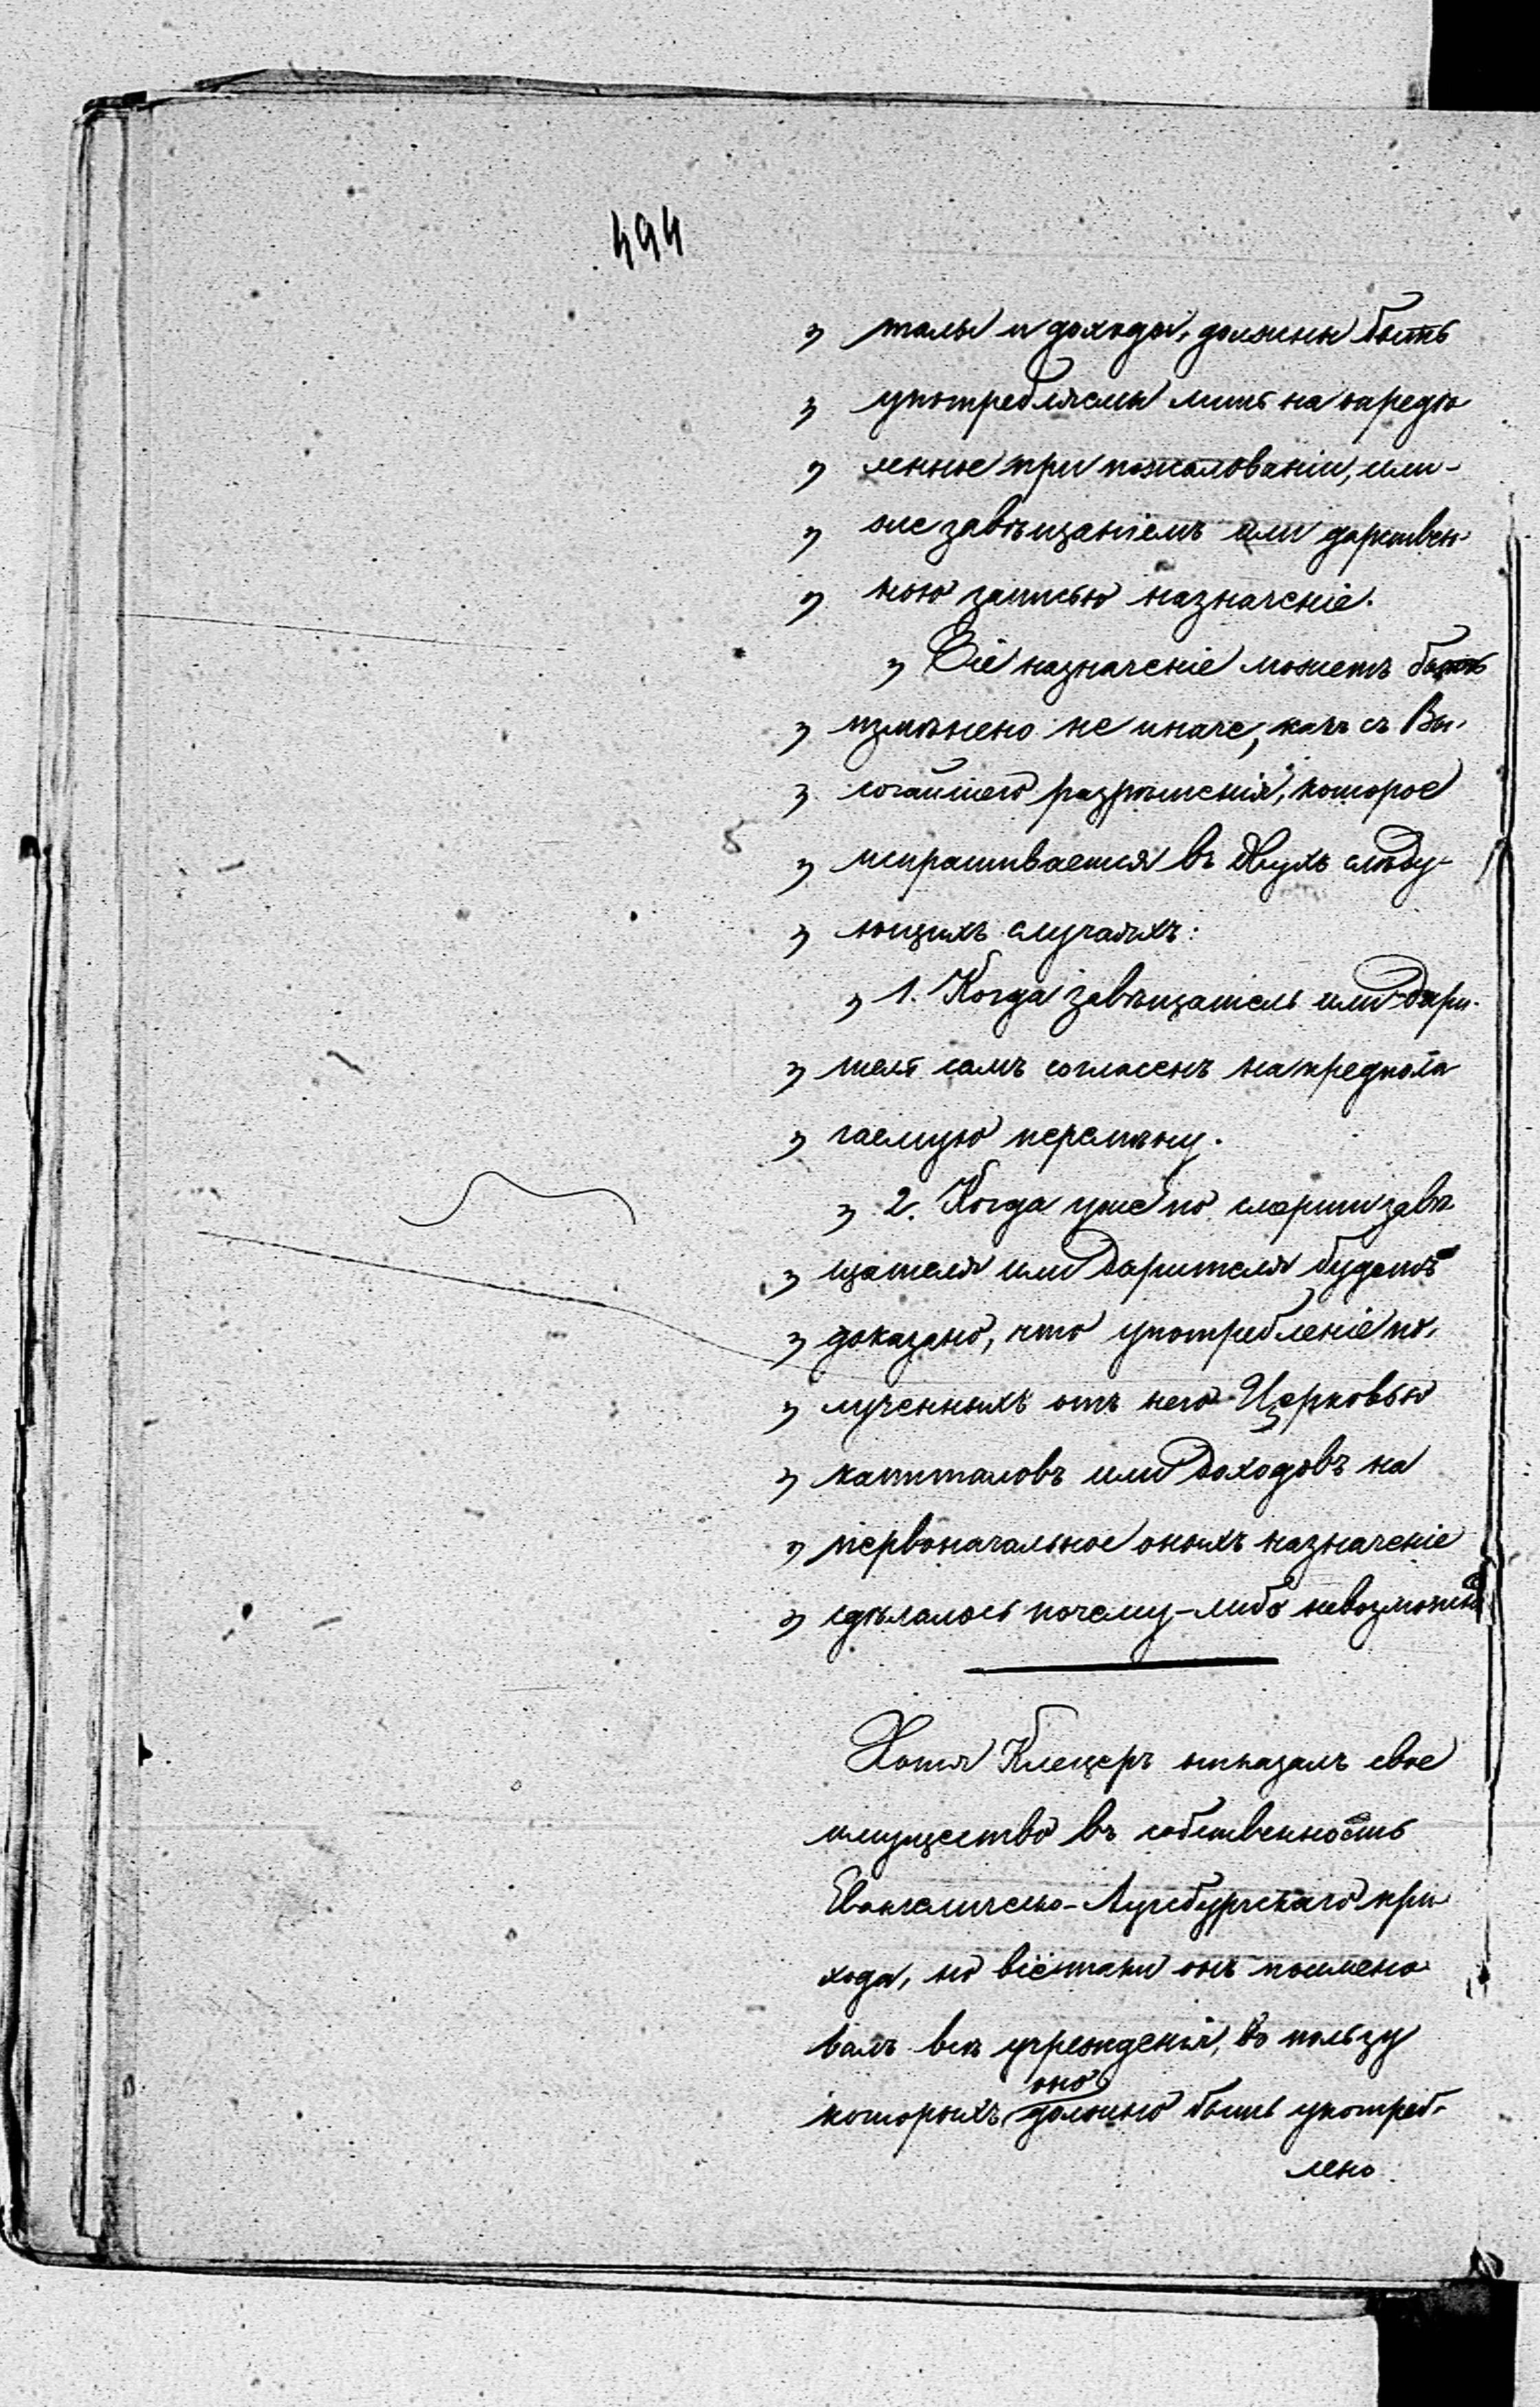 494
„ талы и доходы, должны быть
„ употребляемы лишь на опредѣ
„ ленное при пожалованіи, или-
„ же завѣщаніемъ или дарствен-
„ ною записью назначеніе.
„ Сіе назначеніе можетъ быть
„ измѣнено не иначе, какъ съ Вы-
„ сочайшего разрѣшенія, которое
„ испрашивается въ двухъ слѣду-
„ ющихъ случаяхъ:
„ 1. Когда завѣщатель или дари-
„ тель самъ согласенъ на предпола
„ гаемую перемѣну.
„ 2. Когда уже по смерти завѣ
„ щателя или дарителя будетъ
„ доказано, что употребленіе по-
„ лученныхъ отъ него Церковью
„ капиталовъ или доходовъ на
„ первоначальное оныхъ назначеніе
„ сдѣлалось почему-либо невозможно
Хотя Клецеръ отказалъ свое
имущество въ собственность
Евангелическо-Аугсбургскаго при
хода, но всётаки онъ поимено
валъ всѣ учрежденія, во пользу
которыхъ оно должно быть употреб-
лено